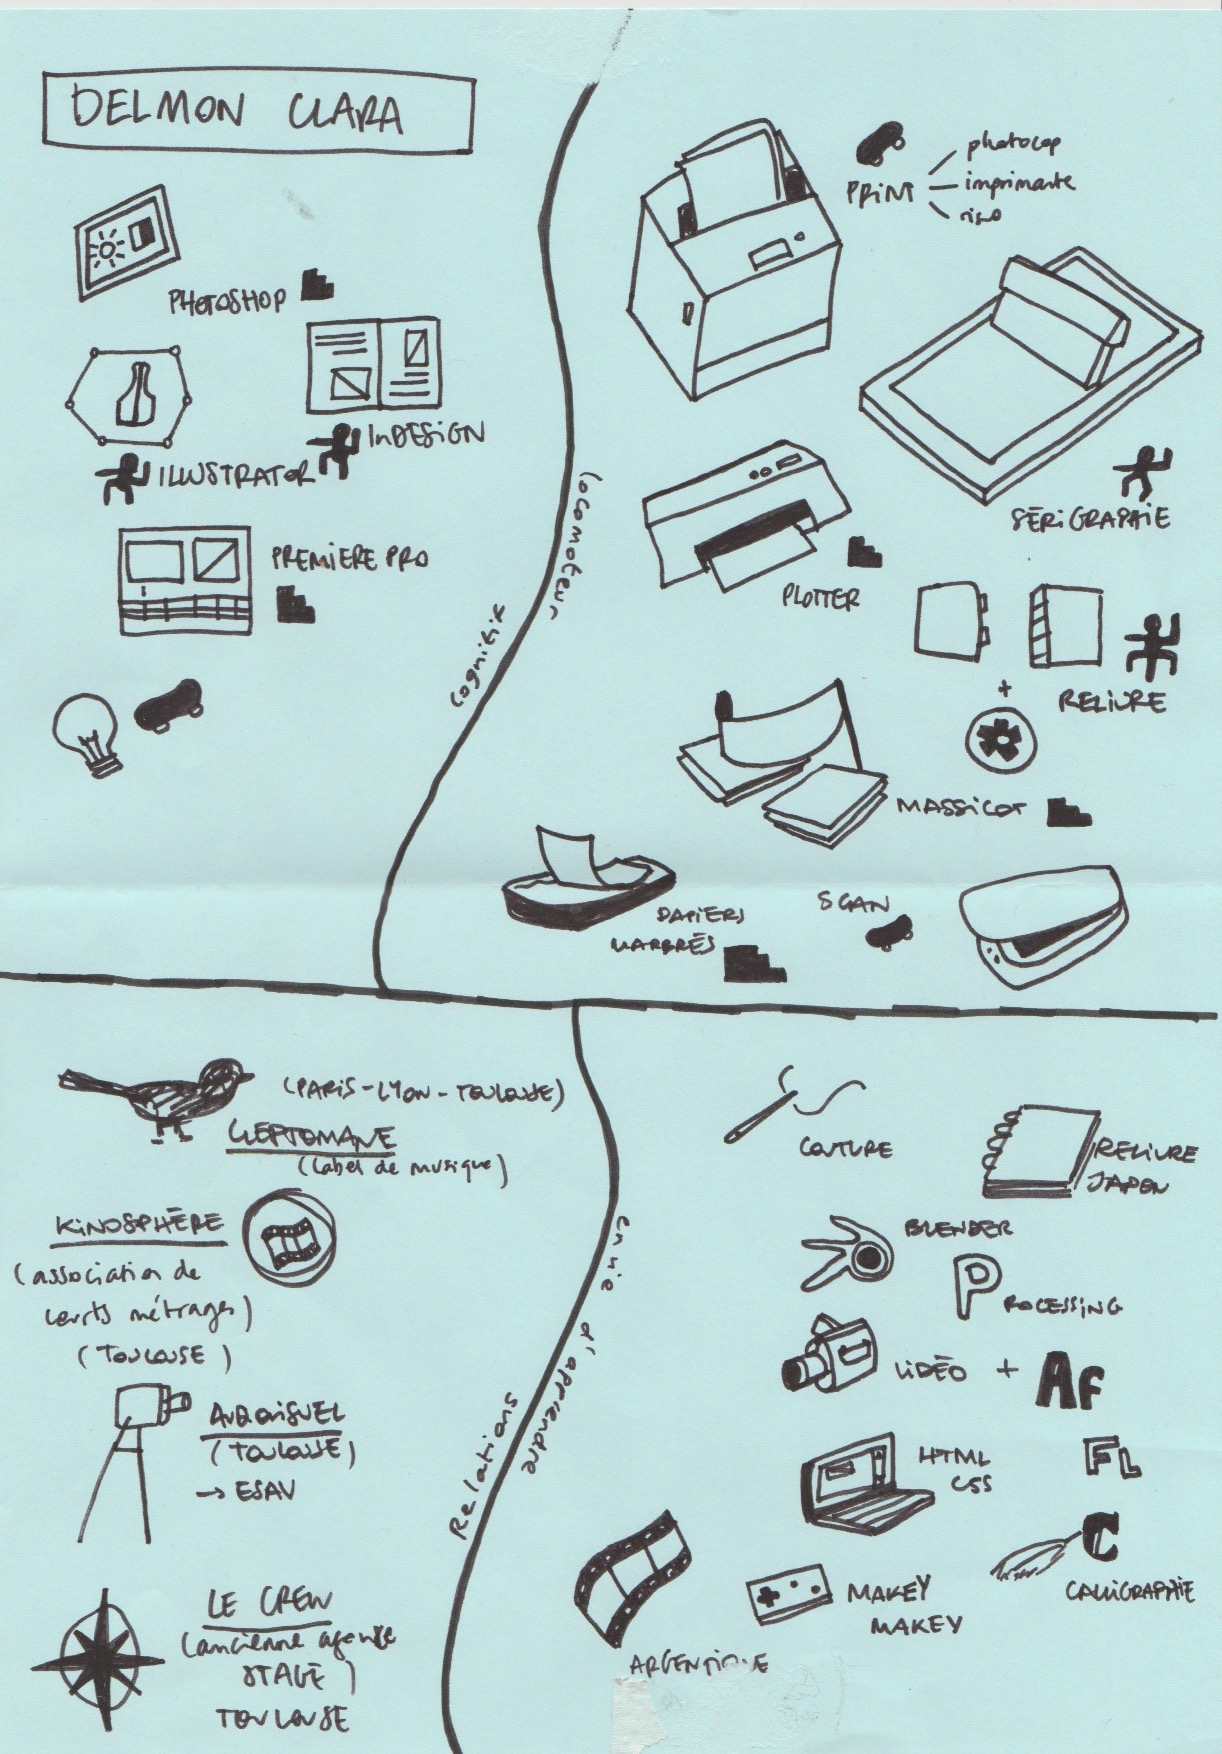 DELMON CLARA
PHOTOSHOP
InDESIGN
ILLUSTRATOR
PREMIERE PRO
cognitif
locomoteur
PRINT
photocop
imprimante
riso
SÉRIGRAPHIE
PLOTTER
+
RELIURE
MASSICOT
SCAN
PAPIERS
MARBRÉS
(PARIS-LYON-TOULOUSE)
CLEPTOMANE
(label de musique)
KINOSPHÈRE
(association de
courts métrages)
(TOULOUSE)
(TOULOUSE)
→ ESAV
LE CREW
(ancienne agence
STAGE)
TOULOUSE
Relations
envie d'apprendre
COUTURE
RELIURE
JAPON
BLENDER
PROCESSING
VIDÉO + AF
HTML
CSS
FL
C
CALLIGRAPHIE
MAKEY
MAKEY
ARGENTIQUE